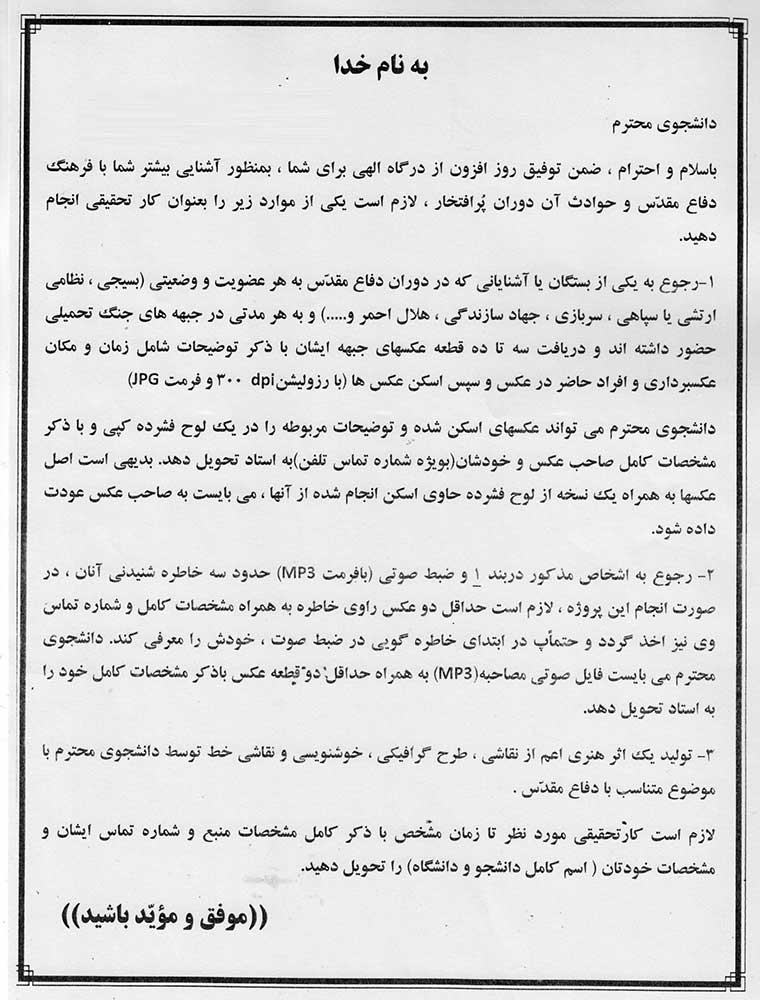 به نام خدا
دانشجوی محترم
باسلام و احترام ، ضمن توفیق روز افزون از درگاه الهی برای شما ، بمنظور آشنایی بیشتر شما با فرهنگ
دفاع مقدّس و حوادث آن دوران پُرافتخار ، لازم است یکی از موارد زیر را بعنوان کار تحقیقی انجام
دهید.
۱-رجوع به یکی از بستگان یا آشنایانی که در دوران دفاع مقدّس به هر عضویت و وضعیتی (بسیجی ، نظامی
ارتشی یا سپاهی ، سربازی ، جهاد سازندگی ، هلال احمر و.....) و به هر مدتی در جبهه های جنگ تحمیلی
حضور داشته اند و دریافت سه تا ده قطعه عکسهای جبهه ایشان با ذکر توضیحات شامل زمان و مکان
عکسبرداری و افراد حاضر در عکس و سپس اسکن عکس ها (با رزولیشن۳۰۰ dpi و فرمت JPG)
دانشجوی محترم می تواند عکسهای اسکن شده و توضیحات مربوطه را در یک لوح فشرده کپی و با ذکر
مشخصات کامل صاحب عکس و خودشان(بویژه شماره تماس تلفن)به استاد تحویل دهد. بدیهی است اصل
عکسها به همراه یک نسخه از لوح فشرده حاوی اسکن انجام شده از آنها ، می بایست به صاحب عکس عودت
داده شود.
۲- رجوع به اشخاص مذکور دربند ۱ و ضبط صوتی (بافرمت MP3) حدود سه خاطره شنیدنی آنان ، در
صورت انجام این پروژه ، لازم است حداقل دو عکس راوی خاطره به همراه مشخصات کامل و شماره تماس
وی نیز اخذ گردد و حتمأپ در ابتدای خاطره گویی در ضبط صوت ، خودش را معرفی کند. دانشجوی
محترم می بایست فایل صوتی مصاحبه(MP3) به همراه حداقل دو قطعه عکس باذکر مشخصات کامل خود را
به استاد تحویل دهد.
۳- تولید یک اثر هنری اعم از نقاشی ، طرح گرافیکی ، خوشنویسی و نقاشی خط توسط دانشجوی محترم با
موضوع متناسب با دفاع مقدّس .
لازم است کارتحقیقی مورد نظر تا زمان مشخص با ذکر کامل مشخصات منبع و شماره تماس ایشان و
مشخصات خودتان ( اسم کامل دانشجو و دانشگاه) را تحویل دهید.
((موفق و مؤیّد باشید))